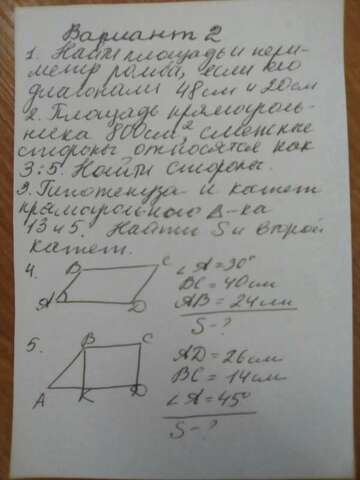 Вариант 2
1. Найти площадь и пери-
метр ромба, если его
диагонали 48см и 20см
2. Площадь прямоуголь-
ника 800см², смежные
стороны относятся как
3:5. Найти стороны.
3. Гипотенуза и катет
прямоугольного Δ-ка
13 и 5. Найти S и второй
катет.
4. B C ∠A = 30°
BC = 40см
A D AB = 24см
S - ?
5. B C AD = 26см
BC = 14см
A K D ∠A = 45°
S - ?